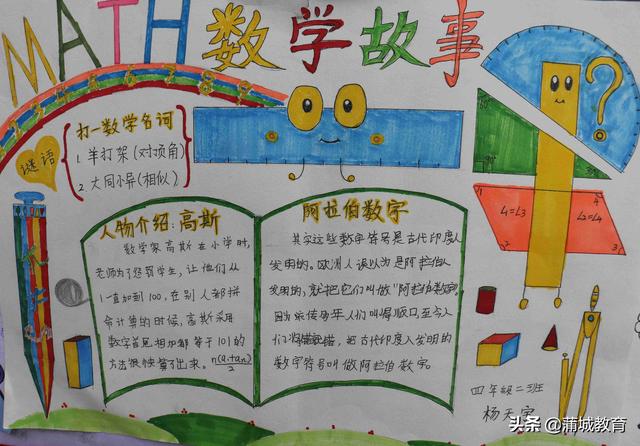 MATH 数学故事
谜语
打一数学名词
1. 羊打架（对顶角）
2. 大同小异（相似）
人物介绍：高斯
数学家高斯在小学时，
老师为了惩罚学生，让他们从
1一直加到100，在别人都拼
命计算的时候，高斯采用
数字首尾相加都等于101的
方法很快算了出来。n(a1+an)/2
阿拉伯数字
其实这些数字符号是古代印度人
发明的。欧洲人误以为是阿拉伯人
发明的，就把它们叫做"阿拉伯数字"
因为流传多年人们叫得顺口至今人
们将错就错，把古代印度人发明的
数字符号叫做阿拉伯数字。
?
90°
1
4
∠1=∠3
∠2=∠4
2
3
四年级二班
杨天宇
头条 @蒲城教育